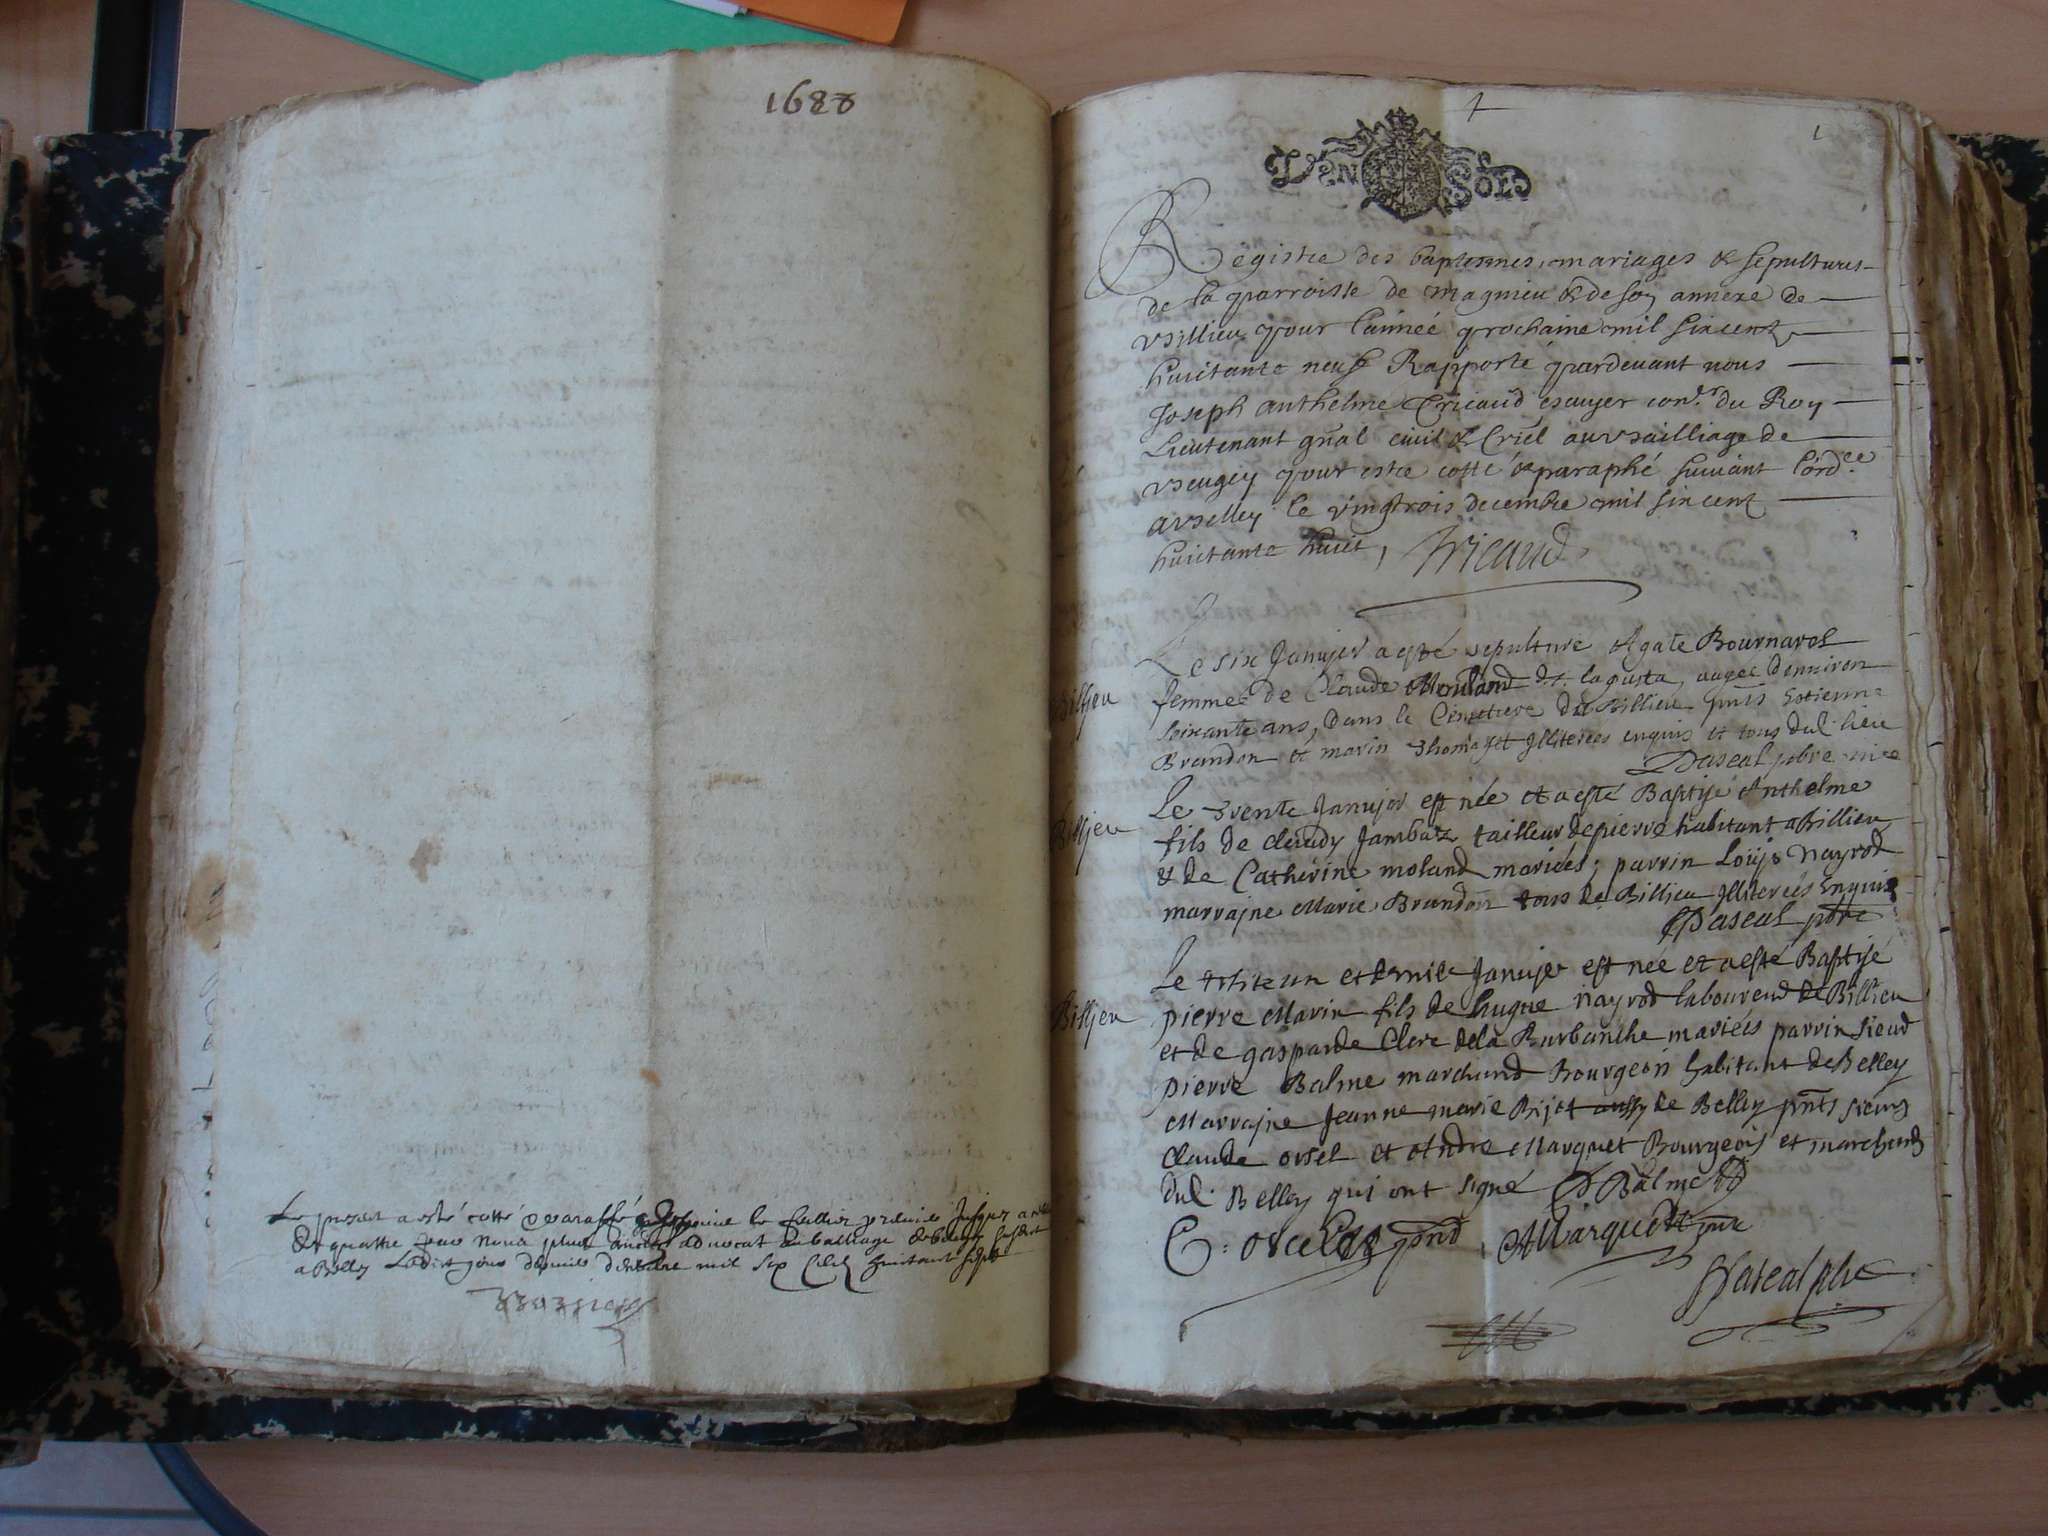 1688
Le present a esté cotté
de quattre par nous plus ancien advocat au balliage de
a Belley mil six huictante sept
1
VN SOL
Registre des baptesmes, mariages & sepultures
de la parroisse de magnieu & de son annexe de
billieu pour l'année prochaine mil six cent
huictante neuf Rapporté pardevant nous
Joseph anthelme Tricaud escuyer con.er du Roy
Lieutenant gnal civil & Criel au bailliage de
beugey pour estre cotté & paraphé suivant l'ord.ce
a belley le vingtrois decembre mil six cent
huictante huict, Tricaud
Le six Janvjer a esté sepulture Agate Bournarel
Billjeu
femme de Claude Mouland d. lagusta, augée d'environ
soixante ans, dans le Cimetiere de Billieu pnts Estienne
Brandon et marin Thomasset Illiterées enquis et tous dud. lieu
Pascal pbre vice
Le trente Janvjer est née et a esté Baptisé Anthelme
Billjeu
fils de claudy Jambaz tailleur de pierre habitant a billieu
& de Catherine moland mariées; parrin Loüjs Nayrod
marrajne Marie Brandon tous de Billieu Illiterées Enquis
Pascal pbre
Le trite un et dernier Janvjer est née et a esté Baptisé
Billjeu
pierre Marin fils de hugue Nayrod laboureur de Billieu
et de gasparde Clerc de la Burbanche mariées parrin sieur
pierre Balme marchand Bourgeois habitant de Belley
Marrajne Jeanne marie Bijot aussy de Belley pnts sieurs
claude orsel et Andre Marquet Bourgeois et marchands
dud. Belley qui ont signé P Balme
C: orcel pnt Marquet pnt
Pascal pbre